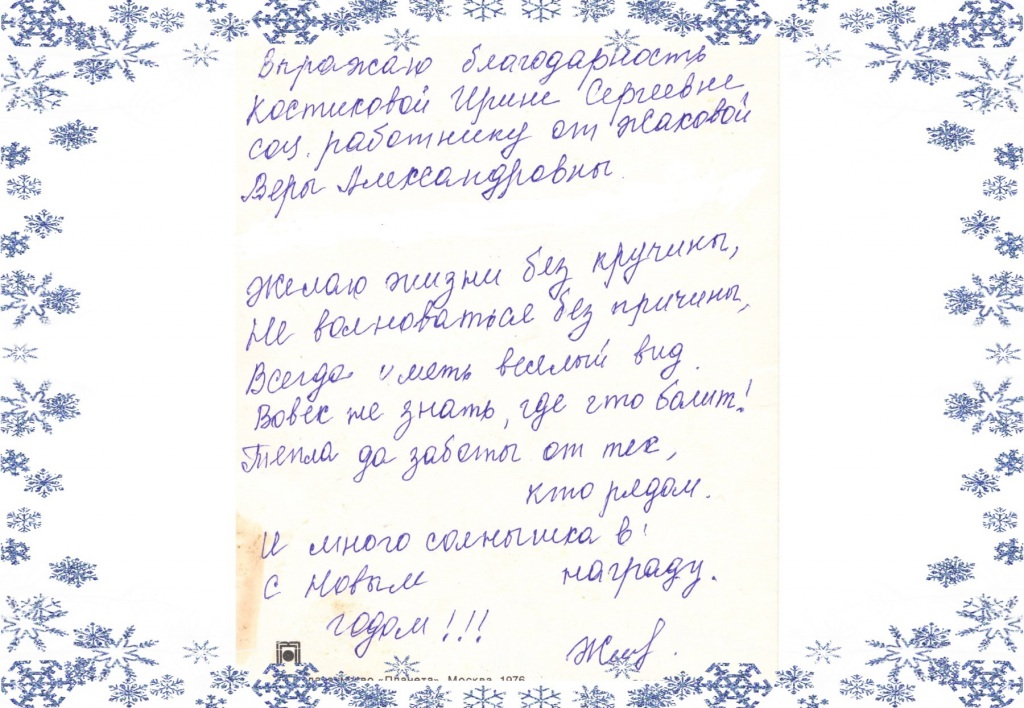 Выражаю благодарность
Костиковой Ирине Сергеевне,
соц. работнику от Жаковой
Веры Александровны.
Желаю жизни без кручины,
Не волноваться без причины,
Всегда иметь веселый вид.
Вовек не знать, где что болит!
Тепла да заботы от тех,
кто рядом.
И много солнышка в
награду.
С Новым
годом!!!
«Планета». Москва. 1976